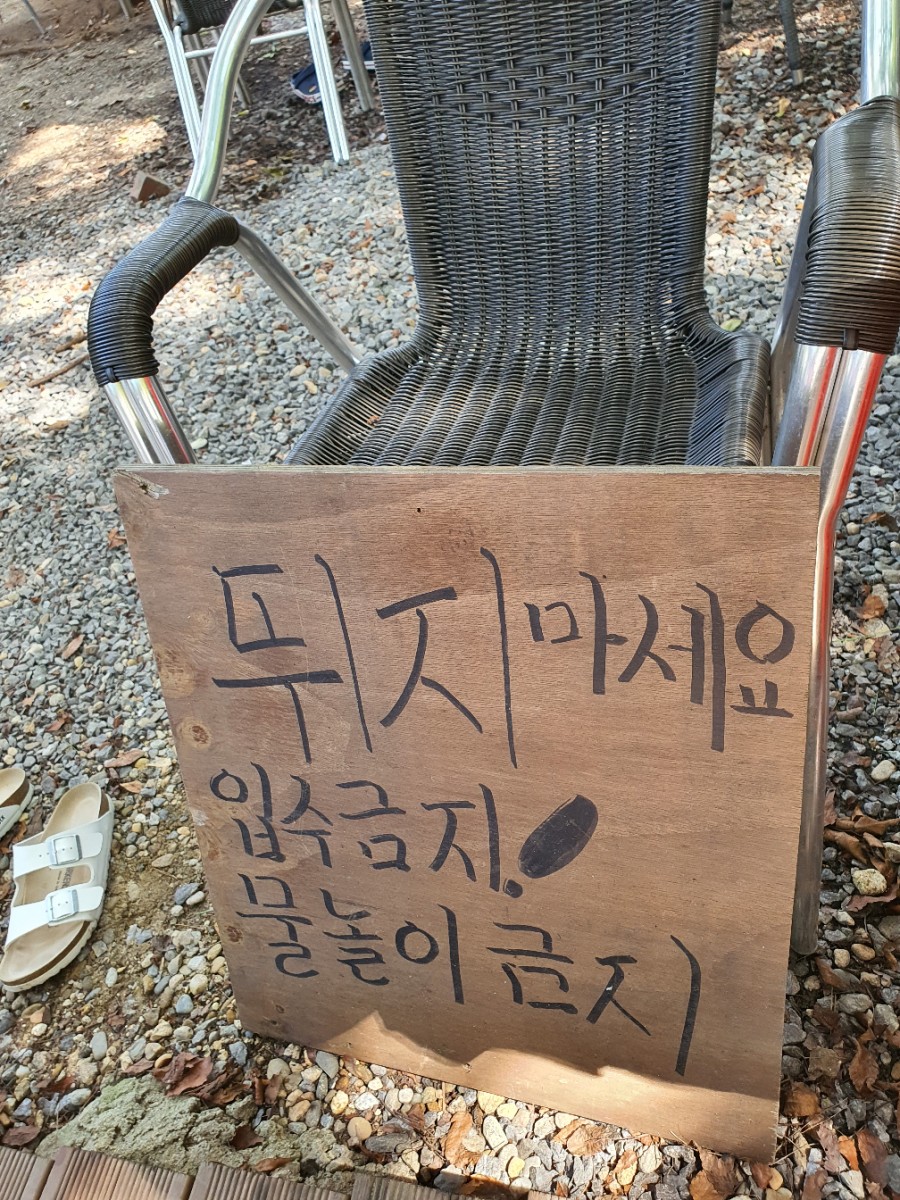 뛰지마세요
입수금지!
물놀이금지